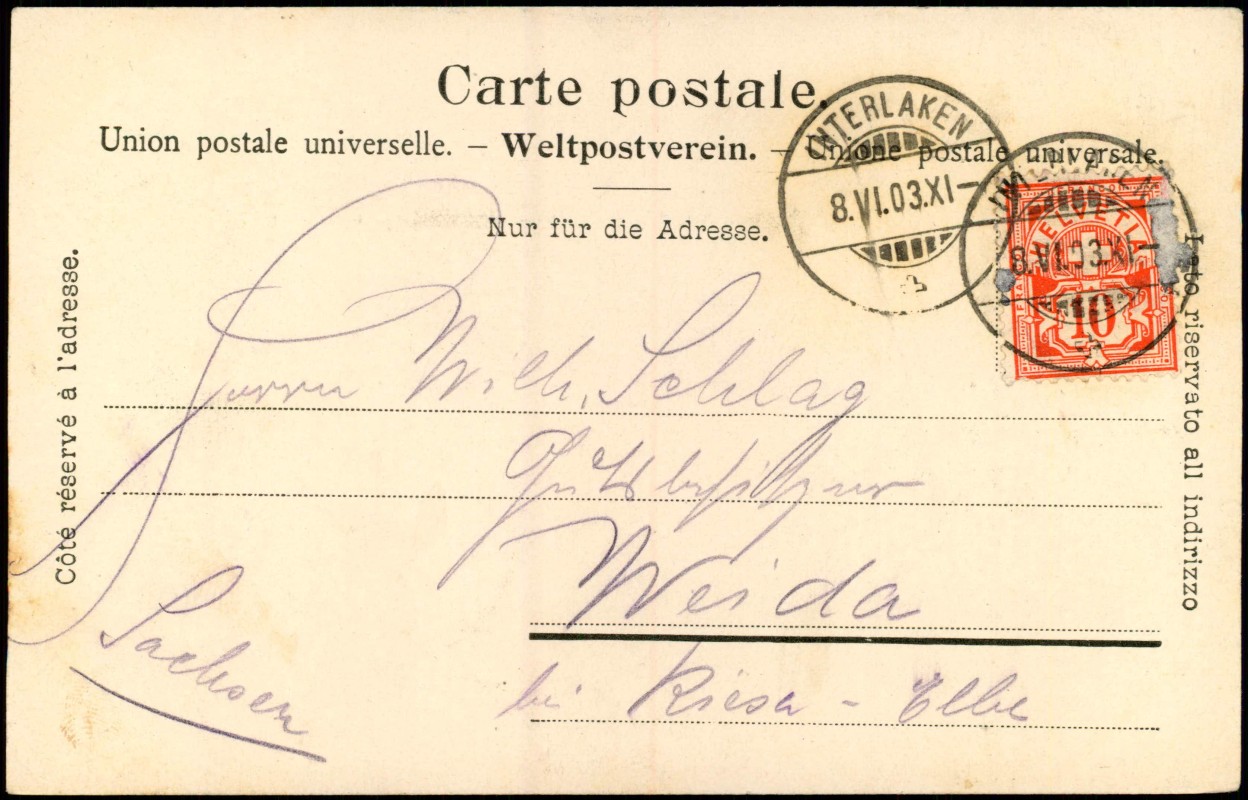 Carte postale.
Union postale universelle. – Weltpostverein. – Unione postale universale.
Nur für die Adresse.
INTERLAKEN
8.VI.03.XI–
INTERLAKEN
8.VI.03.XI–
HELVETIA
FRANCO
10
Côté réservé à l'adresse.
Lato riservato all indirizzo
Herrn Wilh. Schlag
Gutsbesitzer
Weida
bei Riesa - Elbe
Sachsen